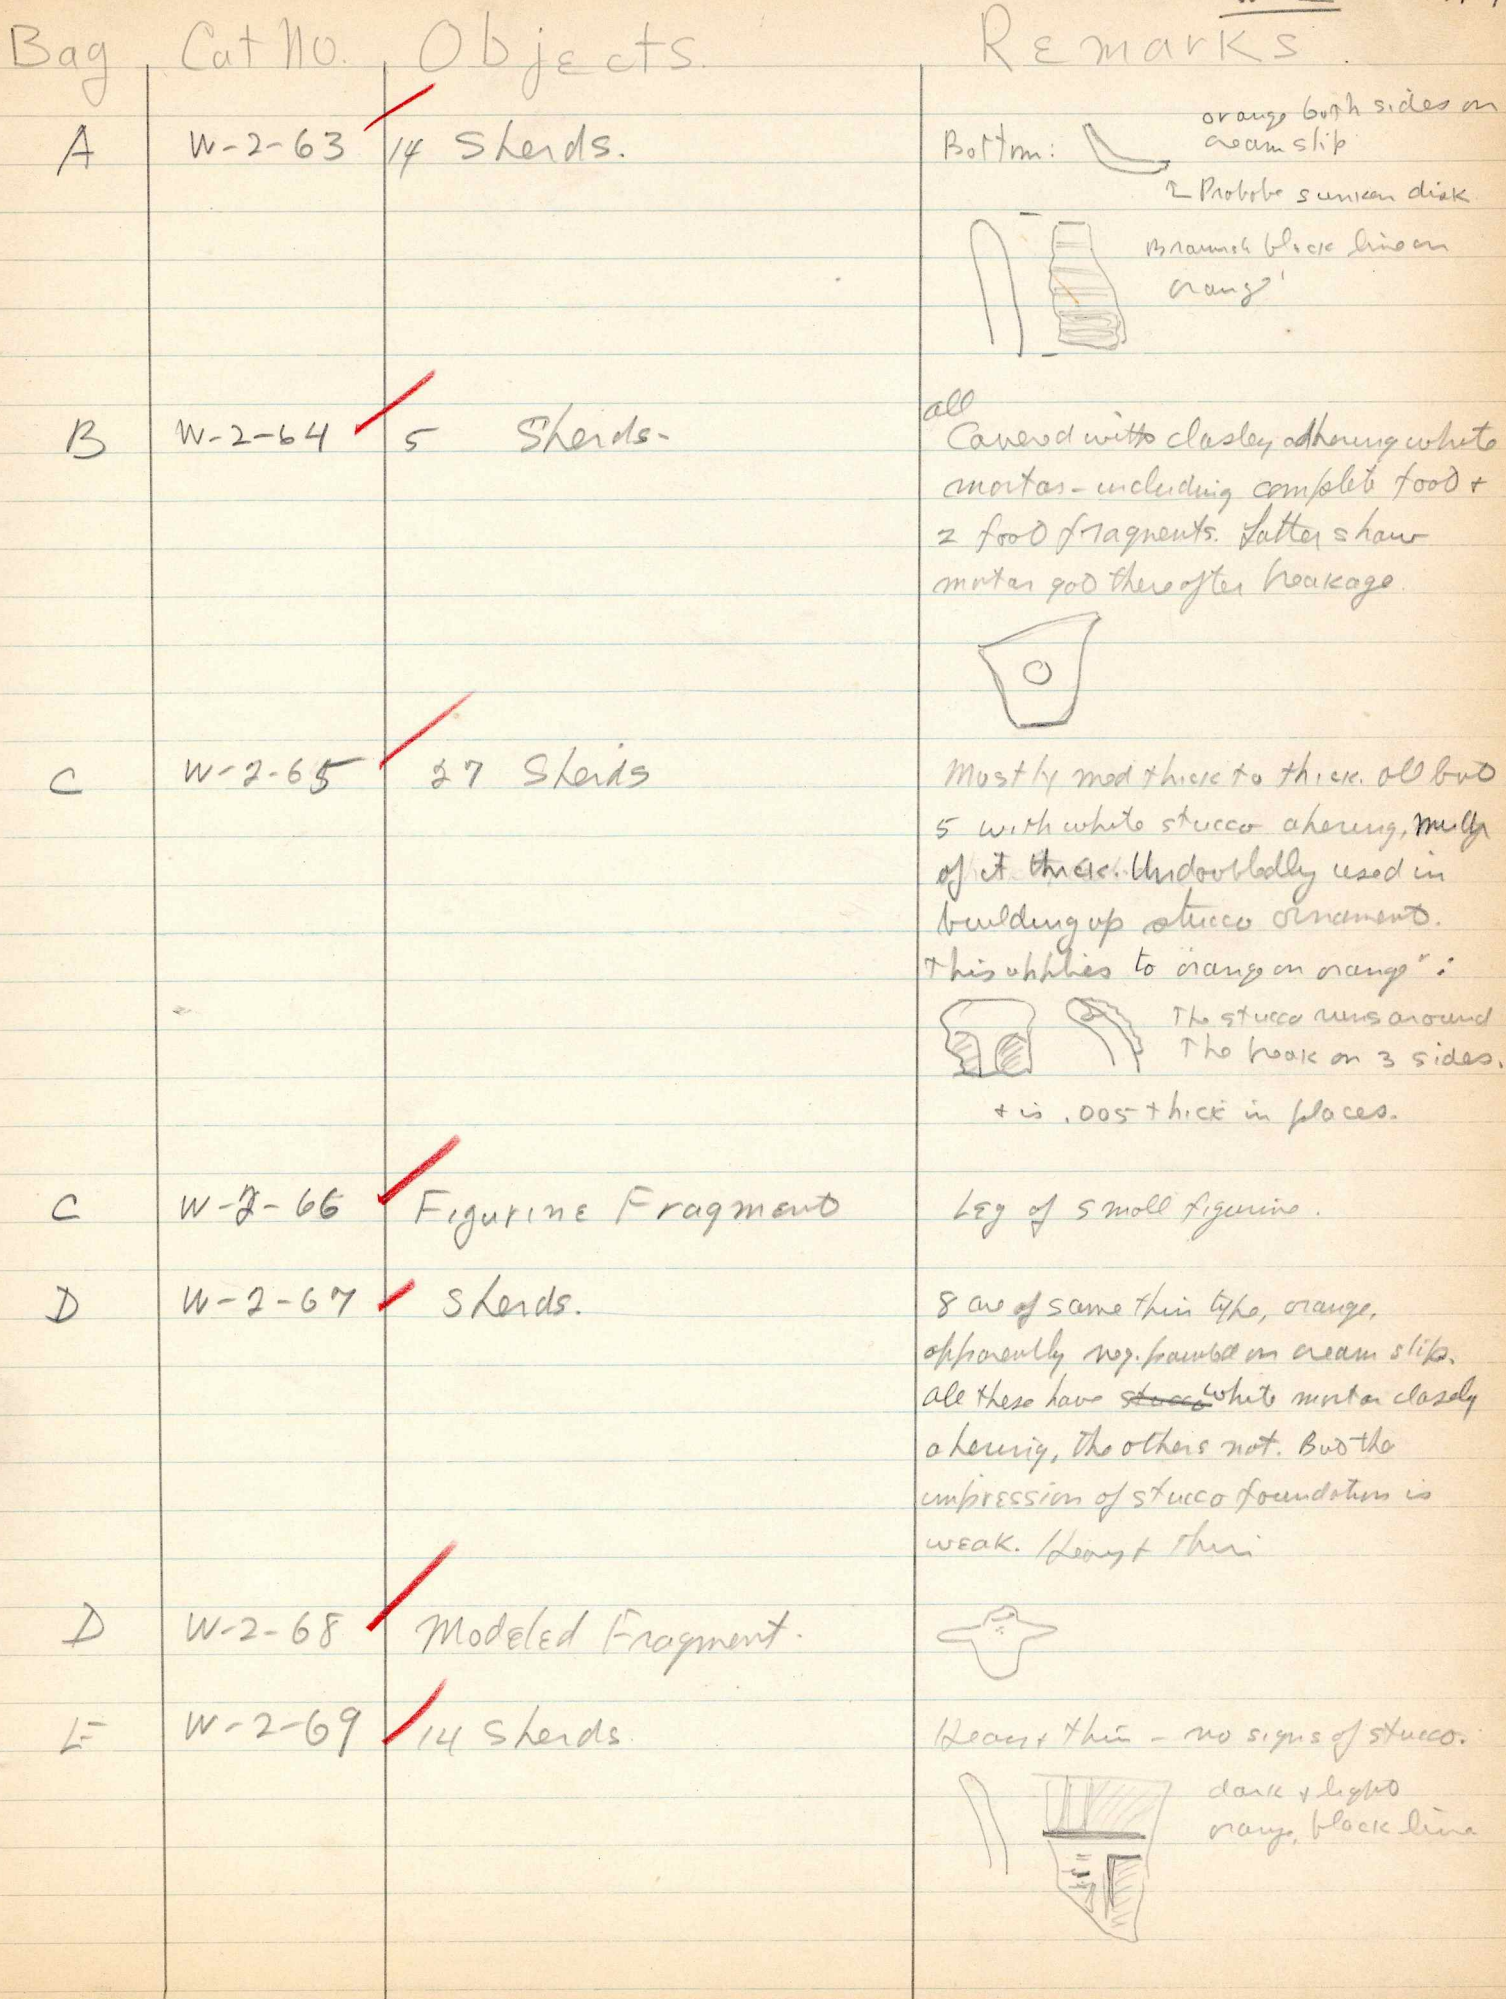 Bag Cat No. Objects. Remarks.
A W-2-63 14 Sherds. Bottom: orange both sides on
cream slip
Probobe sunken disk
Brownish black line on
orange
B W-2-64 5 Sherds-
all
Covered with closley adhering white
mortar - including complete foot +
2 foot fragments. Latter show
mortar got there after breakage.
C W-2-65 27 Sherds Mostly med thick to thick. All but
5 with white stucco ahering, much
of it thick. Undoubtedly used in
building up stucco ornament.
This applies to orange on orange":
The stucco runs around
The break on 3 sides.
+ is .005 thick in places.
C W-2-66 Figurine Fragment Leg of small figurine.
D W-2-67 Sherds. 8 are of same thin type, orange,
apparently neg. painted on cream slip.
All these have stucco white mortar closely
ahering, the others not. But the
impression of stucco foundation is
weak. Heavy + thin
D W-2-68 Modeled Fragment.
E W-2-69 14 Sherds. Heavy + thin - no signs of stucco.
dark + light
orange, black line